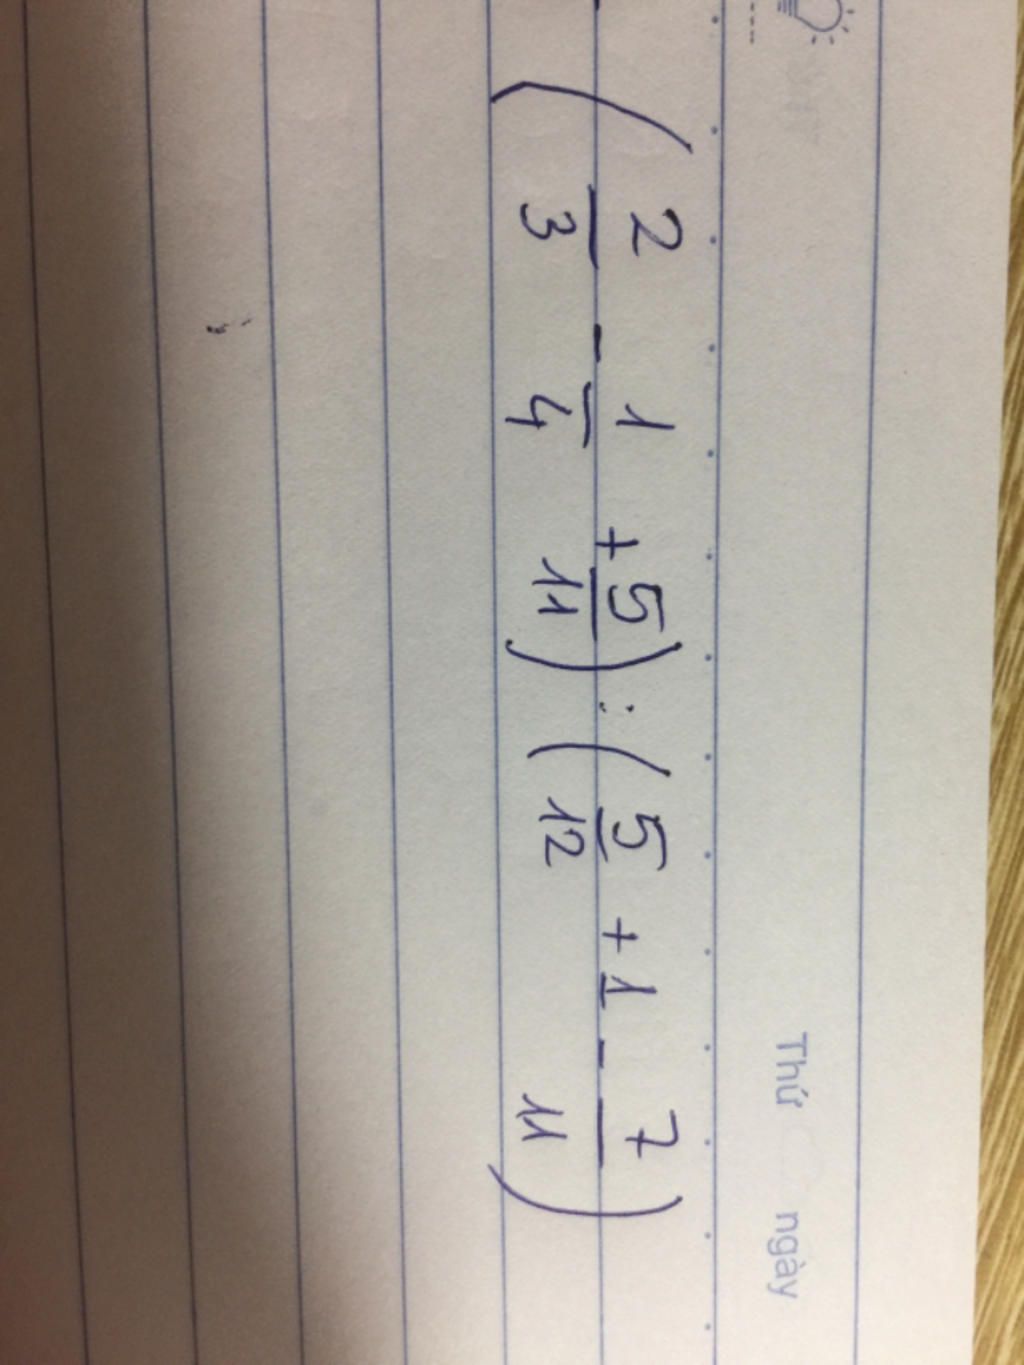 Thứ ngày
( 2/3 - 1/4 + 5/11 ) : ( 5/12 + 1 - 7/11 )